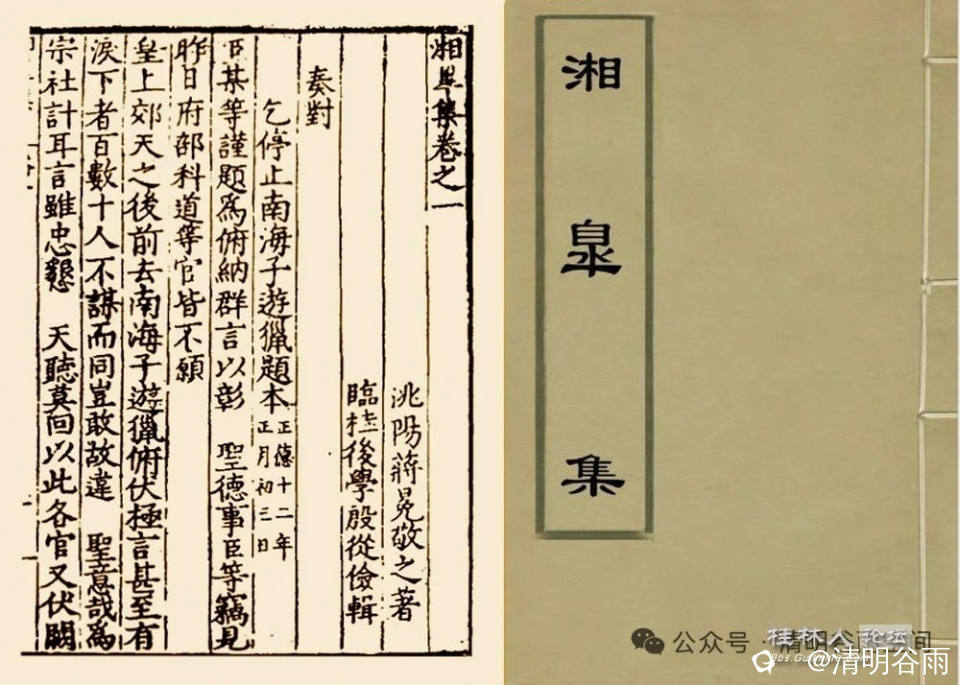 湘皋集卷之一
洮陽蔣冕敬之著
臨桂後學殷從儉輯
奏對
乞停止南海子遊獵題本
正德十二年
正月初三日
臣某等謹題為俯納群言以彰 聖德事臣等竊見
昨日府部科道等官皆不願
皇上郊天之後前去南海子遊獵俯伏極言甚至有
淚下者百數十人不謀而同豈敢故違 聖意哉為
宗社計耳言雖忠懇 天聽莫回以此各官又伏闕
湘皋集
桂林人论坛
公众号 · 清明谷雨 间
@清明谷雨